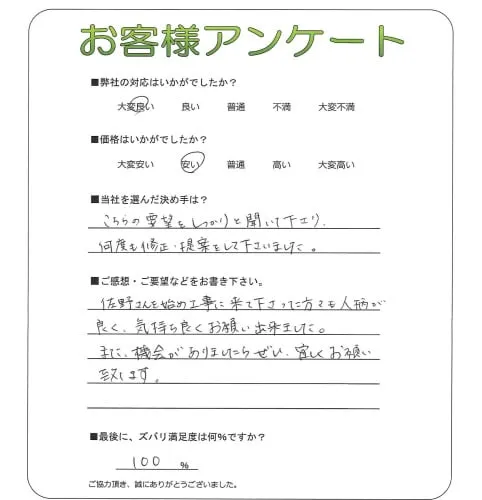 お客様アンケート
■弊社の対応はいかがでしたか?
大変良い 良い 普通 不満 大変不満
■価格はいかがでしたか?
大変安い 安い 普通 高い 大変高い
■当社を選んだ決め手は?
こちらの要望をしっかりと聞いて下さり、
何度も修正・提案をして下さいました。
■ご感想・ご要望などをお書き下さい。
佐野さんを始め工事に来て下さった方々も人柄が
良く、気持ち良くお願い出来ました。
また、機会がありましたらぜひ、宜しくお願い
致します。
■最後に、ズバリ満足度は何%ですか?
100 %
ご協力頂き、誠にありがとうございました。